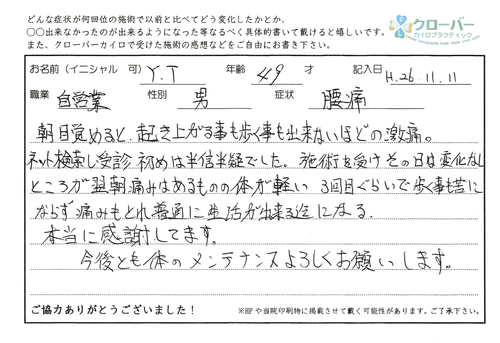 どんな症状が何回位の施術で以前と比べてどう変化したかとか、
○○出来なかったのが出来るようになった等なるべく具体的書いて戴けると嬉しいです。
また、クローバーカイロで受けた施術の感想などをご自由にお書き下さい。
クローバー
カイロプラクティック
お名前（イニシャル 可） Y.T 年齢 49 才 記入日 H.26.11.11
職業 自営業 性別 男 症状 腰痛
朝目覚めると、起き上がる事も歩く事も出来ないほどの激痛。
ネット検索し受診 初めは半信半疑でした。施術を受けその日は変化なし
ところが翌朝痛みはあるものの体が軽い 3回目ぐらいで歩く事も苦に
ならず痛みもとれ普通に生活が出来る迄になる.
本当に感謝してます。
今後とも体のメンテナンスよろしくお願いします。
ご協力ありがとうございました！ ※HPや当院印刷物に掲載させて戴く可能性があります。ご了承下さい。